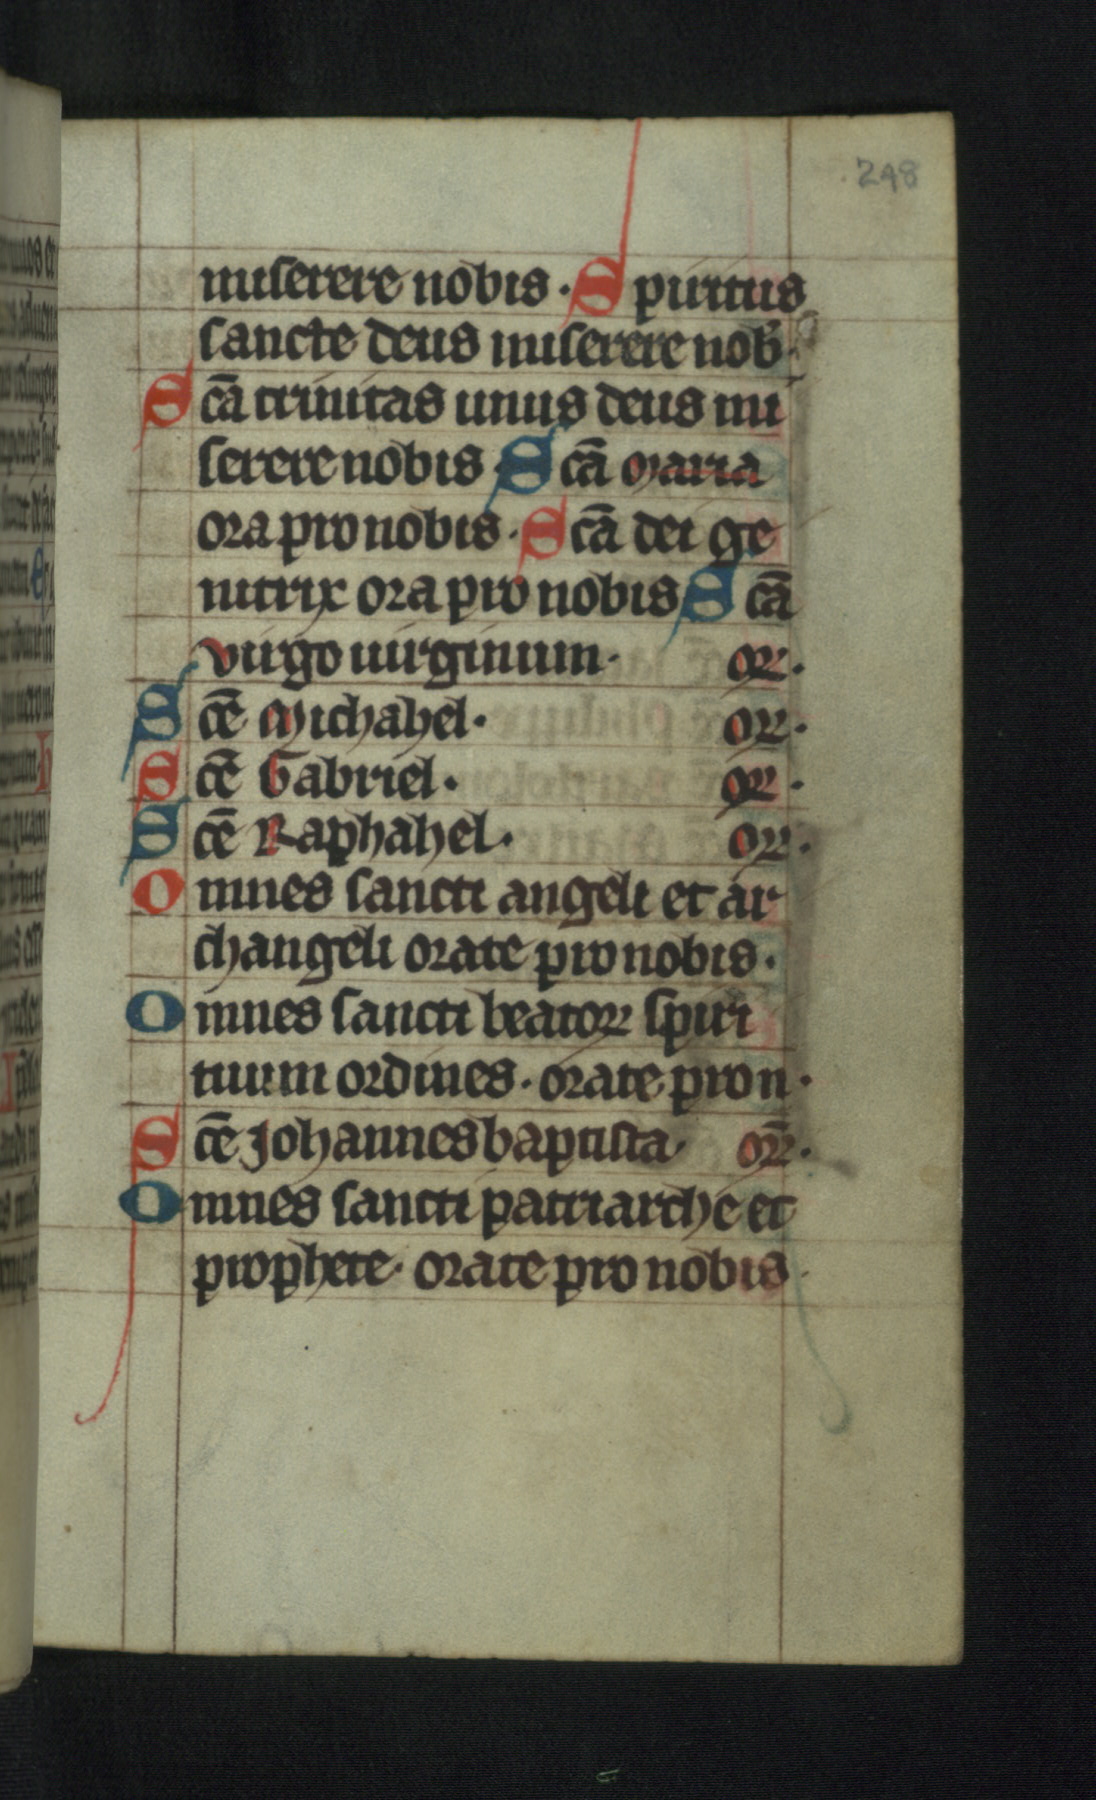 248
miserere nobis. Spiritus
sancte deus miserere nob.
Scā trinitas unus deus mi
serere nobis. Scā maria
ora pro nobis. Scā dei ge
nitrix ora pro nobis Scā
virgo uirginum. or.
Scē Michahel. or.
Scē Gabriel. or.
Scē Raphahel. or.
Omnes sancti angeli et ar
changeli orate pro nobis.
Omnes sancti beatoꝝ spiri
tuum ordines. orate pro n.
Scē Johannes baptista. or.
Omnes sancti patriarche et
prophete. orate pro nobis